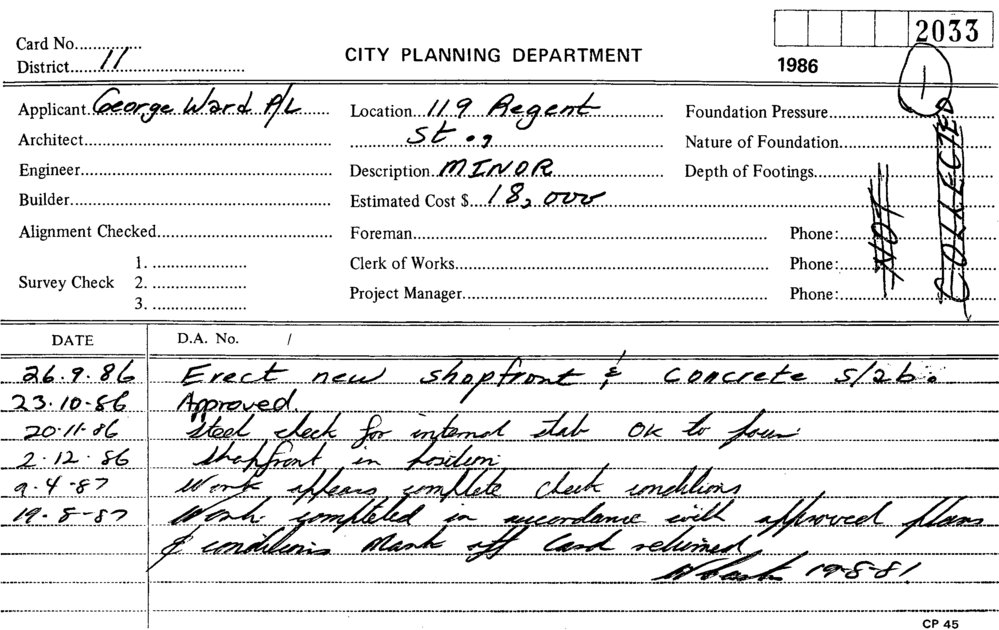 2033
Card No.
District 11
CITY PLANNING DEPARTMENT
1986
1
Applicant George Ward P/L
Location 119 Regent
St.
Foundation Pressure
Architect
Nature of Foundation
Engineer
Description MINOR
Depth of Footings
Builder
Estimated Cost $ 18,000
Alignment Checked
Foreman
Phone:
Survey Check
1.
2.
3.
Clerk of Works
Phone:
Project Manager
Phone:
NOT
COLLECTED
DATE
D.A. No. /
26.9.86 Erect new shopfront & concrete slab.
23.10.86 Approved.
20.11.86 Steel check for internal slab OK to pour
2.12.86 Shopfront in position
9.4.87 Work appears complete check conditions
19.8.87 Work completed in accordance with approved plans
& conditions Mark off Card returned
19-8-87
CP 45